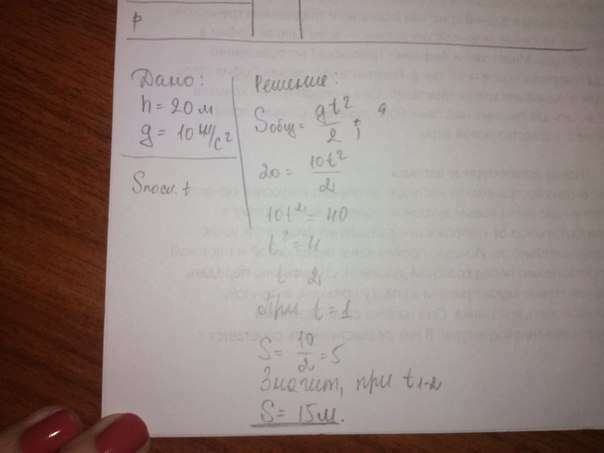 p
Дано:
h = 20 м
g = 10 м/с²
Sпосл. t
Решение:
Sобщ = gt²/2 ;
20 = 10t²/2
10t² = 40
t² = 4
t = 2
При t = 1
S = 10/2 = 5
Значит, при t₁₋₂
S = 15 м.